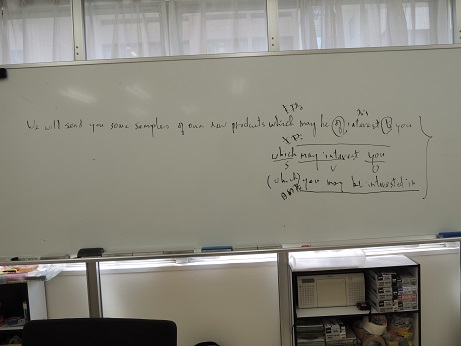 We will send you some samples of our new products which may be of interest to you
which may interest you
S V O
(which) you may be interested in